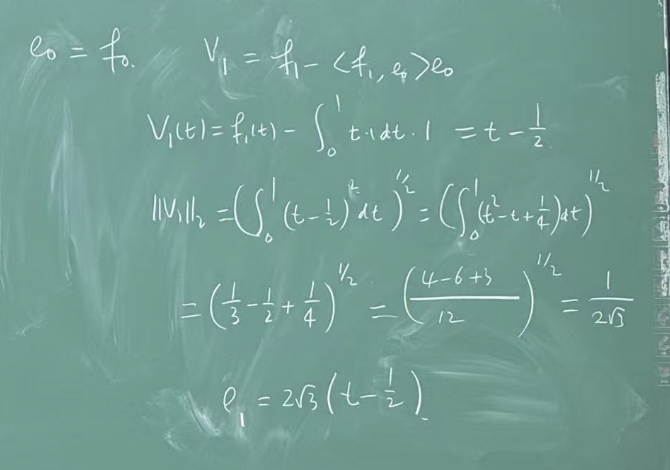 e₀ = f₀. V₁ = f₁ - <f₁, e₀>e₀
V₁(t) = f₁(t) - ∫₀¹ t·1dt·1 = t - 1/2
||V₁||₂ = (∫₀¹ (t - 1/2)² dt)^1/2 = (∫₀¹ (t² - t + 1/4)dt)^1/2
= (1/3 - 1/2 + 1/4)^1/2 = ((4-6+3)/12)^1/2 = 1/(2√3)
e₁ = 2√3 (t - 1/2).